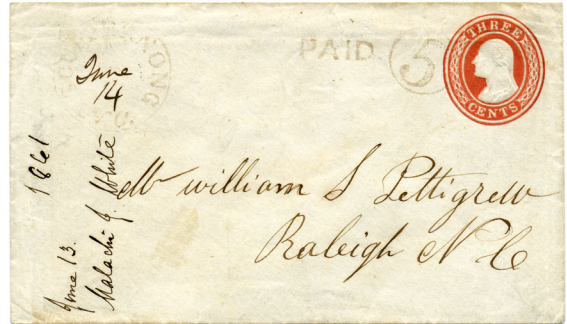 PAID 5
THREE
CENTS
June
14
Mr william S Pettigrew
Raleigh N C
1861
June 13.
Malachi J. White